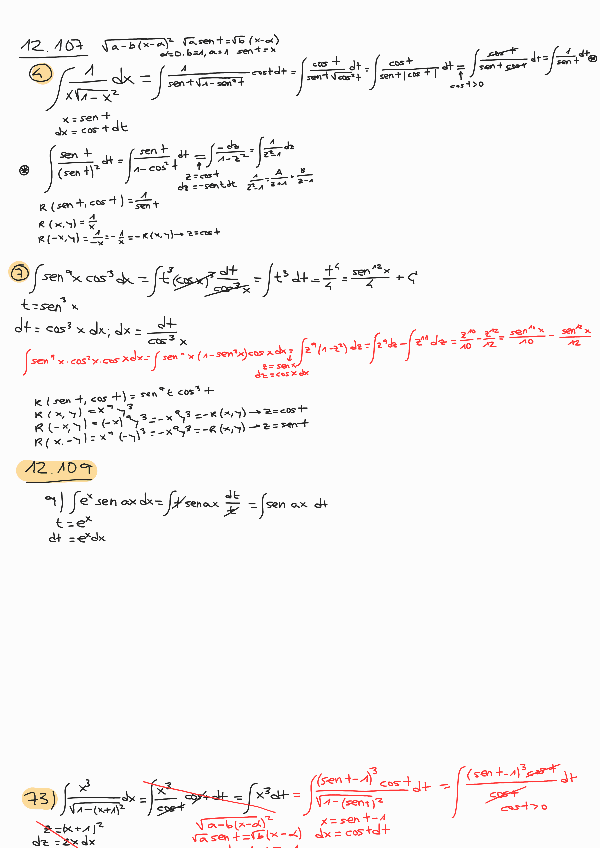 12.107 √(a-b(x-α)²) √a sen t = √b (x-α)
α=0, b=1, a=1 sen t = x
4 ∫ 1/(x√(1-x²)) dx = ∫ 1/(sen t √(1-sen² t)) cos t dt = ∫ cos t/(sen t √cos² t) dt = ∫ cos t/(sen t |cos t|) dt = ∫ cos t/(sen t cos t) dt = ∫ 1/sen t dt ⊛
cos t > 0
x = sen t
dx = cos t dt
⊛ ∫ sen t/(sen t)² dt = ∫ sen t/(1-cos² t) dt = ∫ -dz/(1-z²) = ∫ 1/(z²-1) dz
z = cos t
dz = -sen t dt 1/(z²-1) = A/(z+1) + B/(z-1)
R(sen t, cos t) = 1/sen t
R(x,y) = 1/x
R(-x,y) = 1/-x = -1/x = -R(x,y) → z = cos t
7 ∫ sen⁹ x cos³ dx = ∫ t³ (cos x)³ dt/cos³ x = ∫ t³ dt = t⁴/4 = sen¹² x/4 + C
t = sen³ x
dt = cos³ x dx; dx = dt/cos³ x
∫ sen⁹ x · cos² x · cos x dx = ∫ sen⁹ x (1-sen² x) cos x dx = ∫ z⁹ (1-z²) dz = ∫ z⁹ dz - ∫ z¹¹ dz = z¹⁰/10 - z¹²/12 = sen¹⁰ x/10 - sen¹² x/12
z = sen x
dz = cos x dx
R(sen t, cos t) = sen⁹ t cos³ t
R(x,y) = x⁹ y³
R(-x,y) = (-x)⁹ y³ = -x⁹ y³ = -R(x,y) → z = cos t
R(x,-y) = x⁹ (-y)³ = -x⁹ y³ = -R(x,y) → z = sen t
12.109
9) ∫ eˣ sen ax dx = ∫ t sen ax dt/t = ∫ sen ax dt
t = eˣ
dt = eˣ dx
73) ∫ x³/√(1-(x+1)²) dx = ∫ x³/cos t cos t dt = ∫ x³ dt = ∫ (sen t-1)³ cos t/√(1-(sen t)²) dt = ∫ (sen t-1)³ cos t/cos t dt
cos t > 0
z = (x+1)² √(a-b(x-α)²) x = sen t - 1
dz = 2x dx √a sen t = √b (x-α) dx = cos t dt